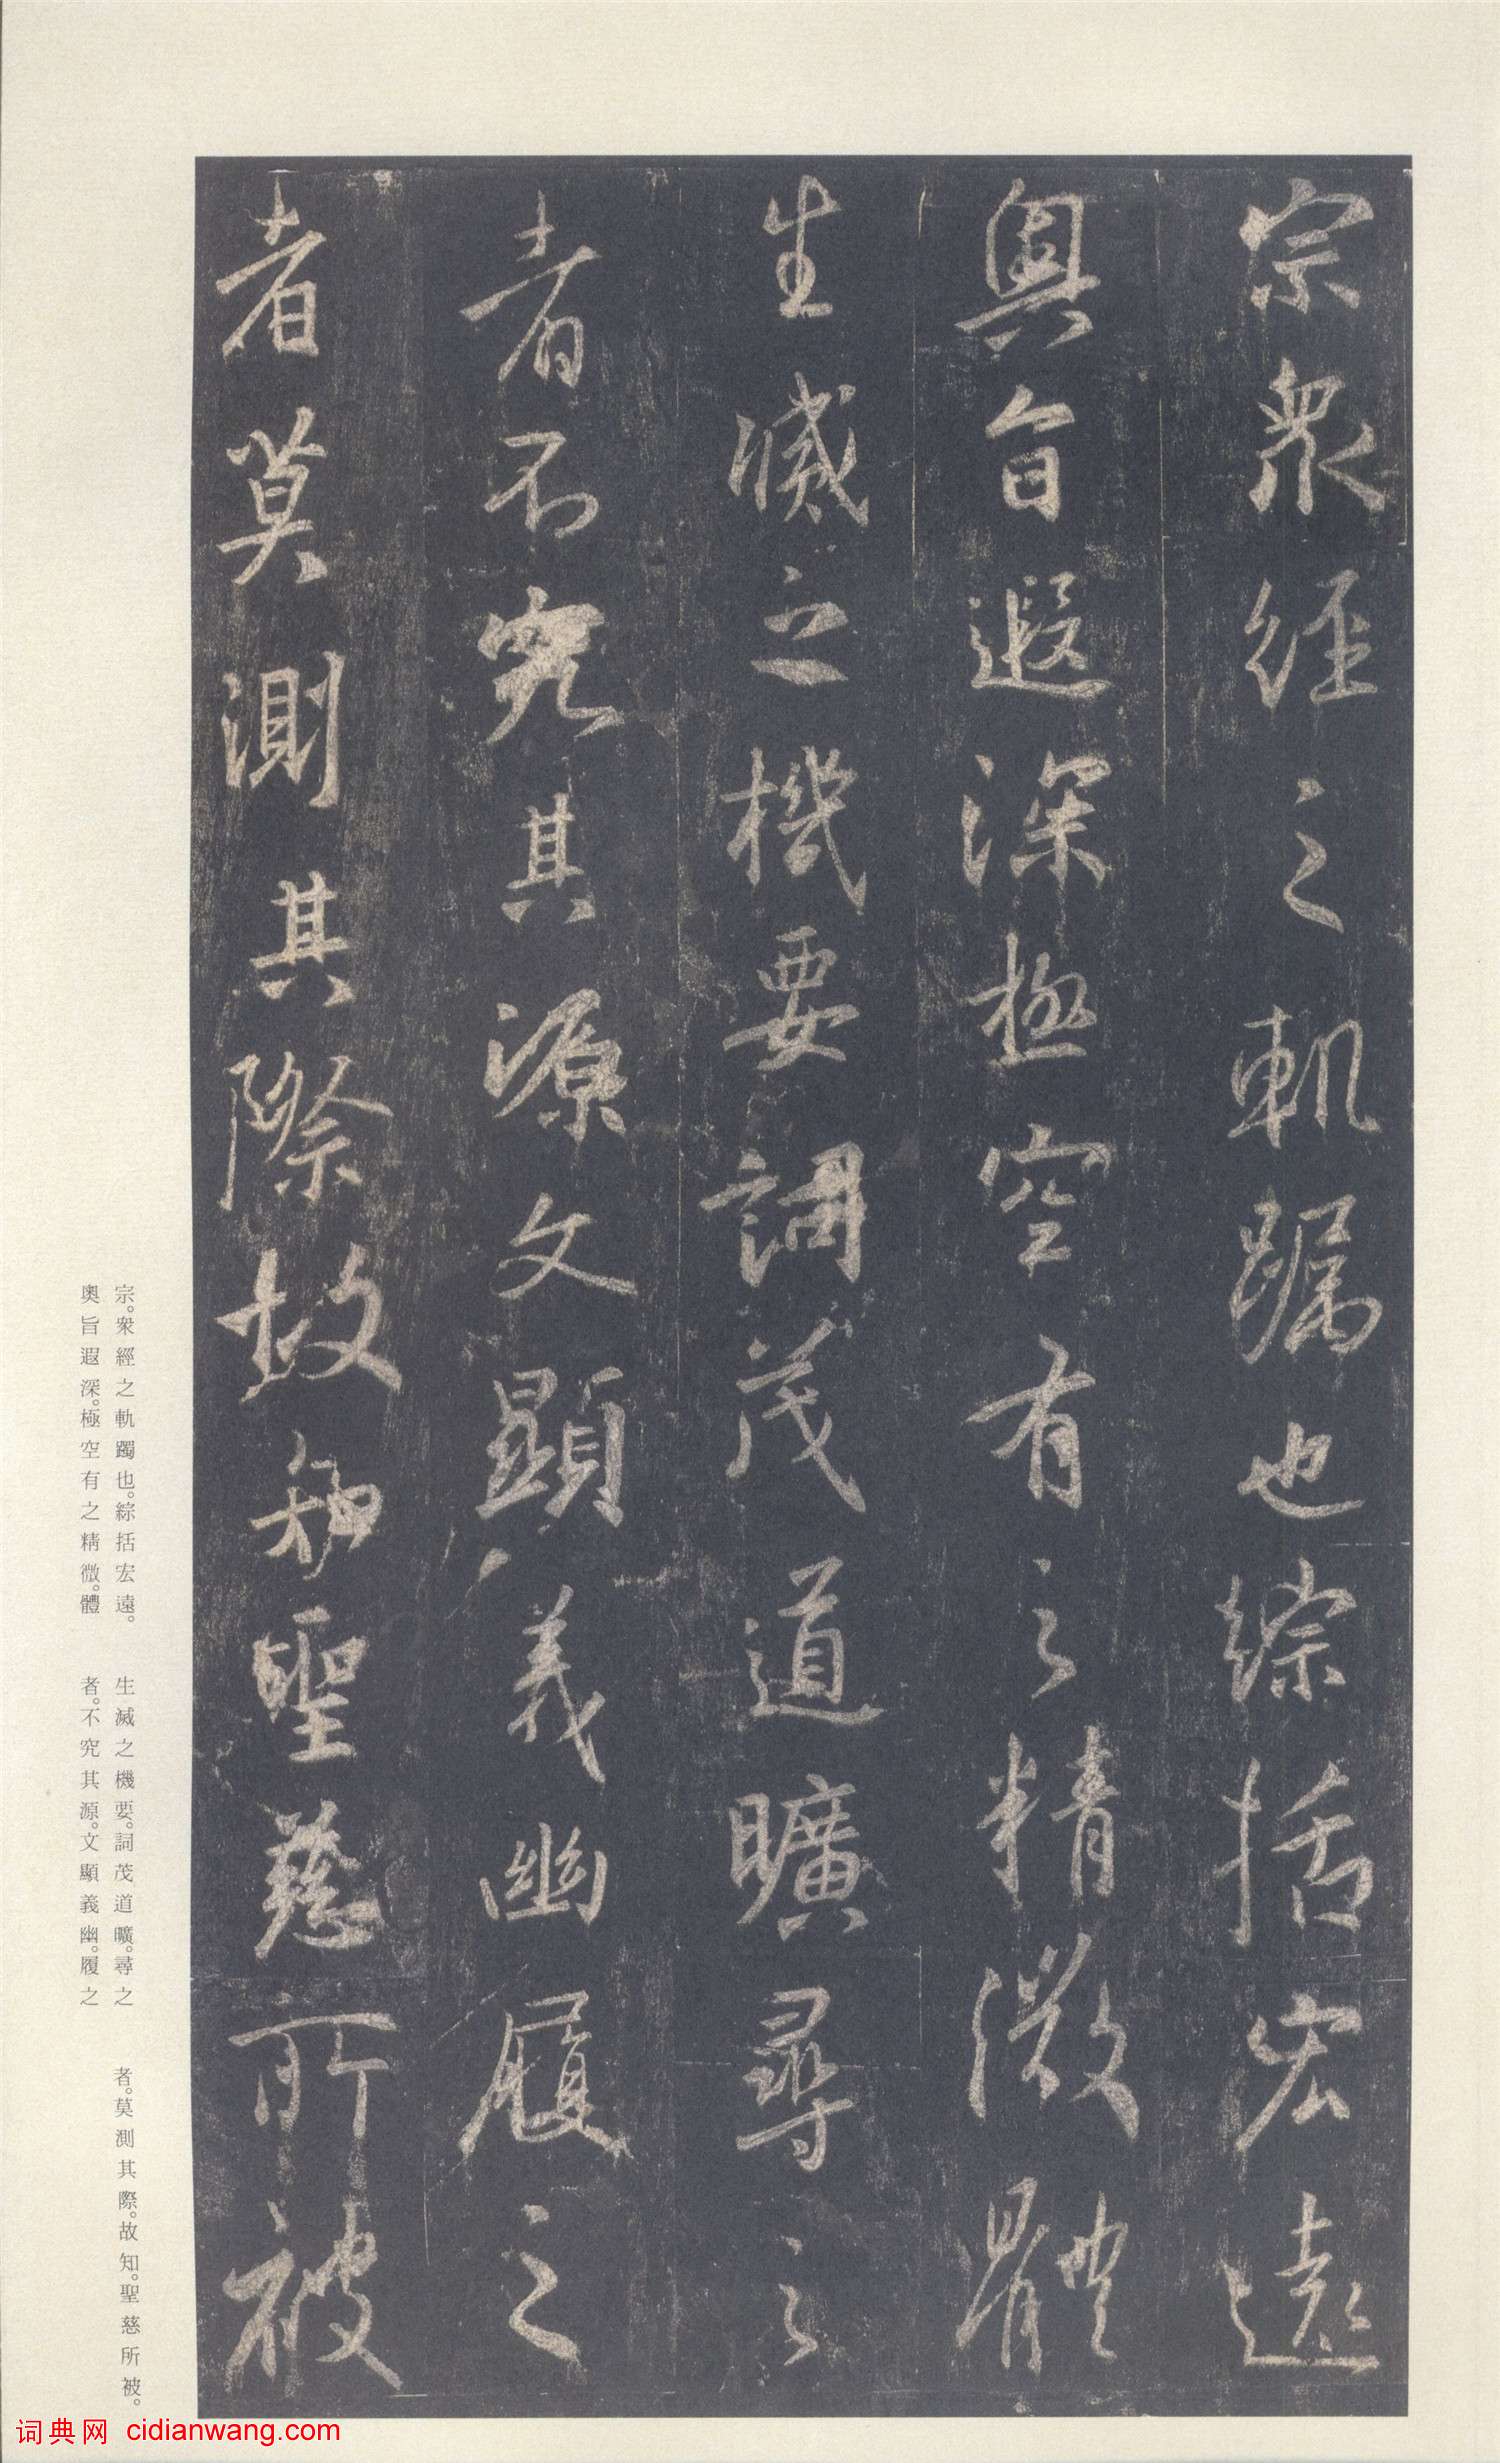 宗衆經之軌躅也綜括宏遠
奧旨遐深極空有之精微體
生滅之機要詞茂道曠尋之
者不究其源文顯義幽履之
者莫測其際故知聖慈所被
宗。衆經之軌躅也。綜括宏遠。
奧旨遐深。極空有之精微。體
生滅之機要。詞茂道曠。尋之
者。不究其源。文顯義幽。履之
者。莫測其際。故知。聖慈所被。
词典网 cidianwang.com